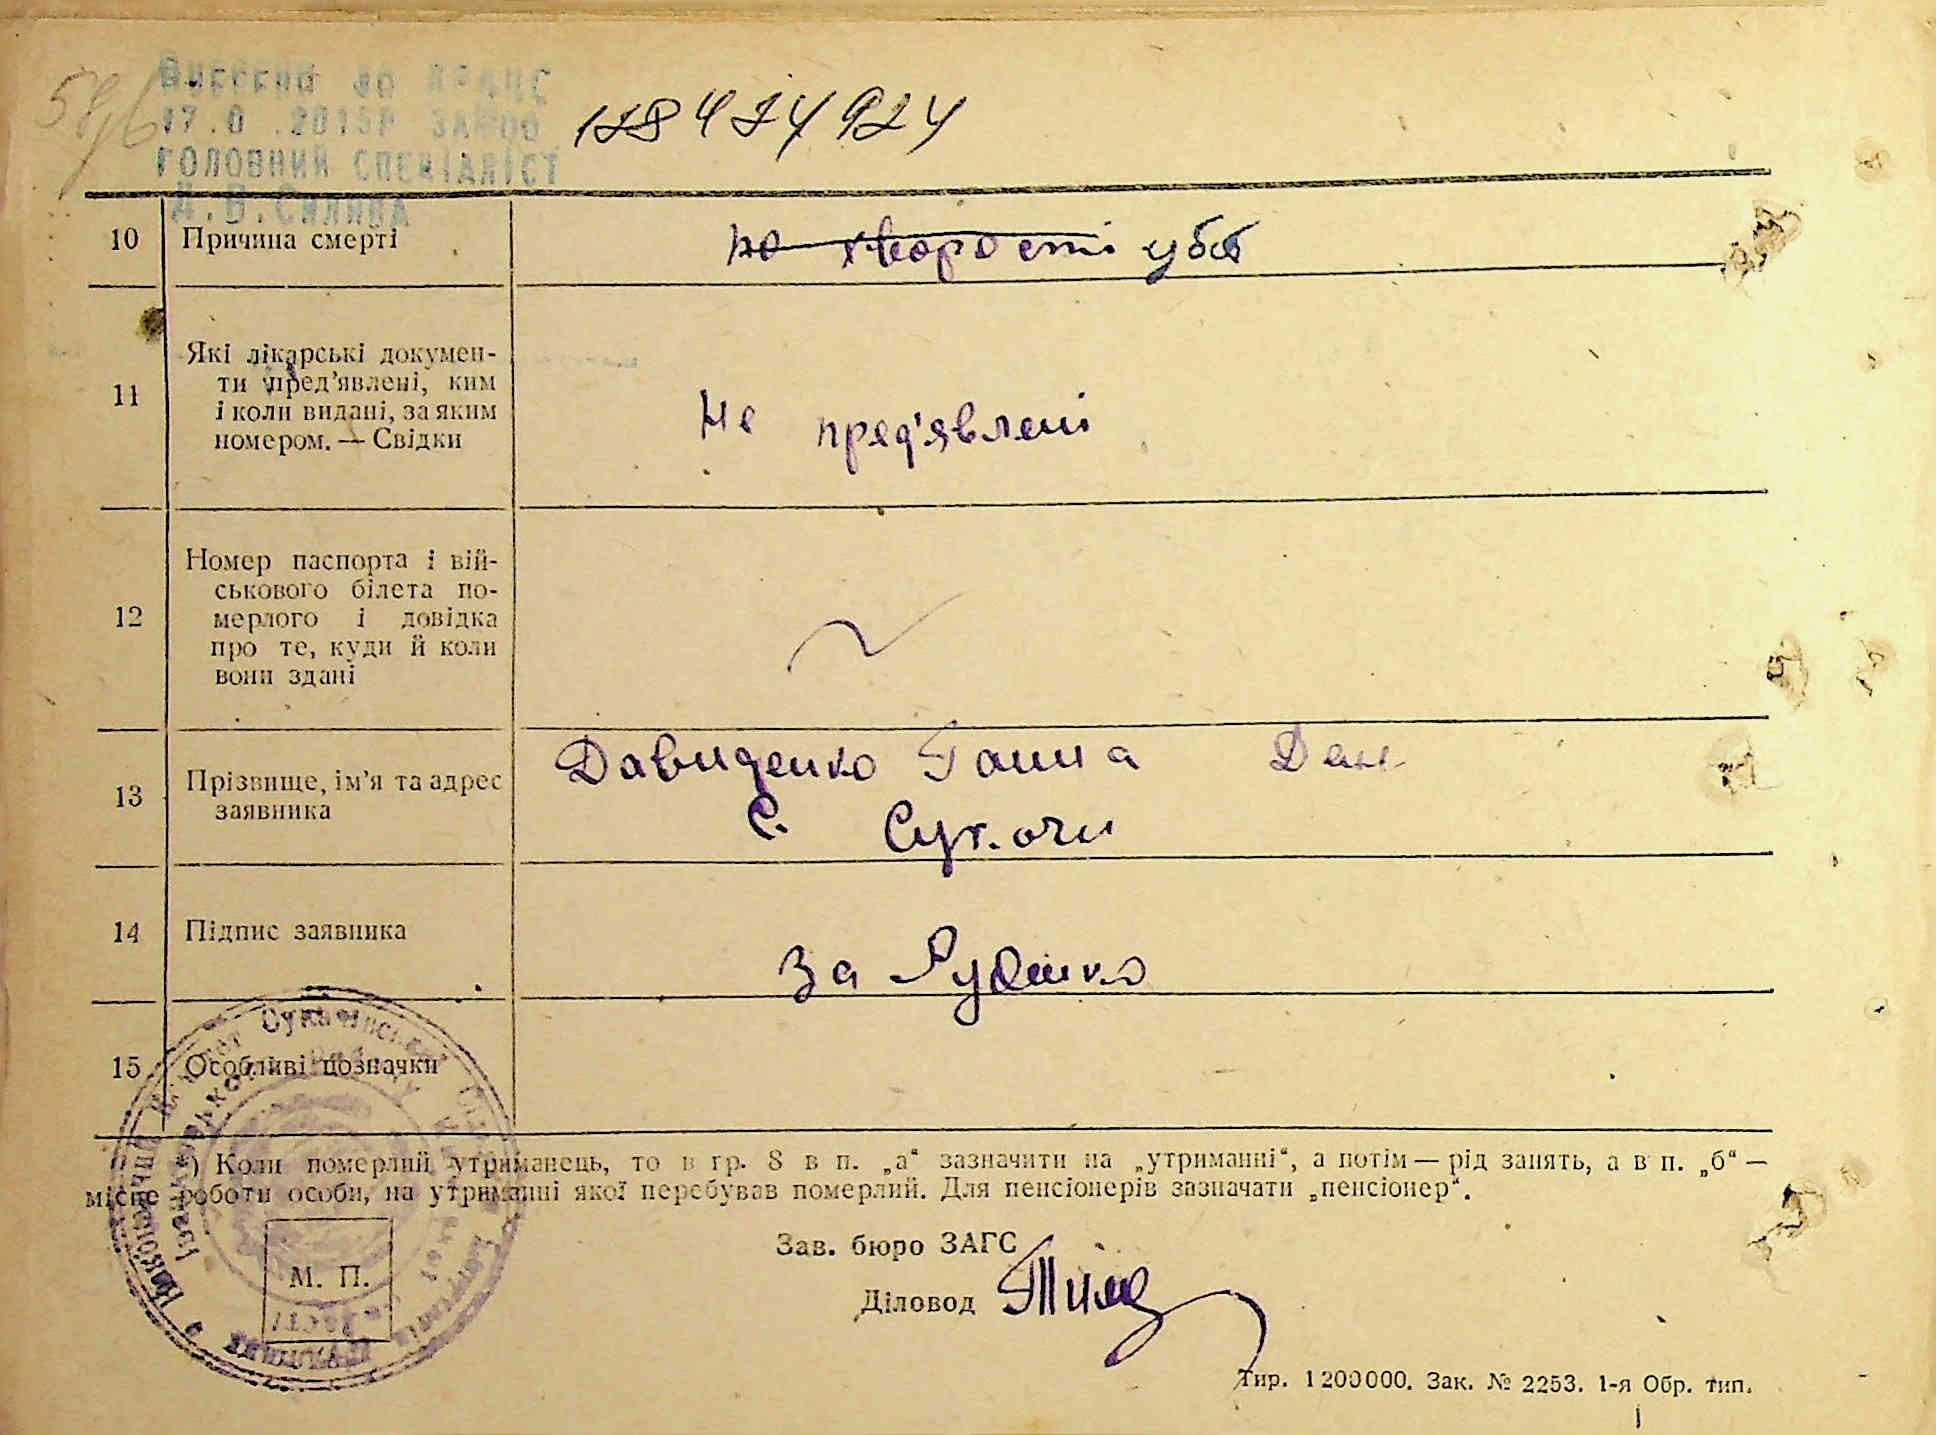 Внесено до
ГОЛОВНИЙ СПЕЦІАЛІСТ
10 Причина смерті
по хворості убит
11 Які лікарські докумен-
ти пред’явлені, ким
і коли видані, за яким
номером. — Свідки
Не пред'явлені
12 Номер паспорта і вій-
ськового білета по-
мерлого і довідка
про те, куди й коли
вони здані
13 Прізвище, ім’я та адрес
заявника
Давиденко Ганна
с. Сукачи
14 Підпис заявника
За
15 Особливі позначки
*) Коли померлий утриманець, то в гр. 8 в п. „а“ зазначити на „утриманні“, а потім — рід занять, а в п. „б“ —
місце роботи особи, на утриманні якої перебував померлий. Для пенсіонерів зазначати „пенсіонер“.
М. П.
Зав. бюро ЗАГС
Діловод
Тир. 1200000. Зак. № 2253. 1-я Обр. тип.